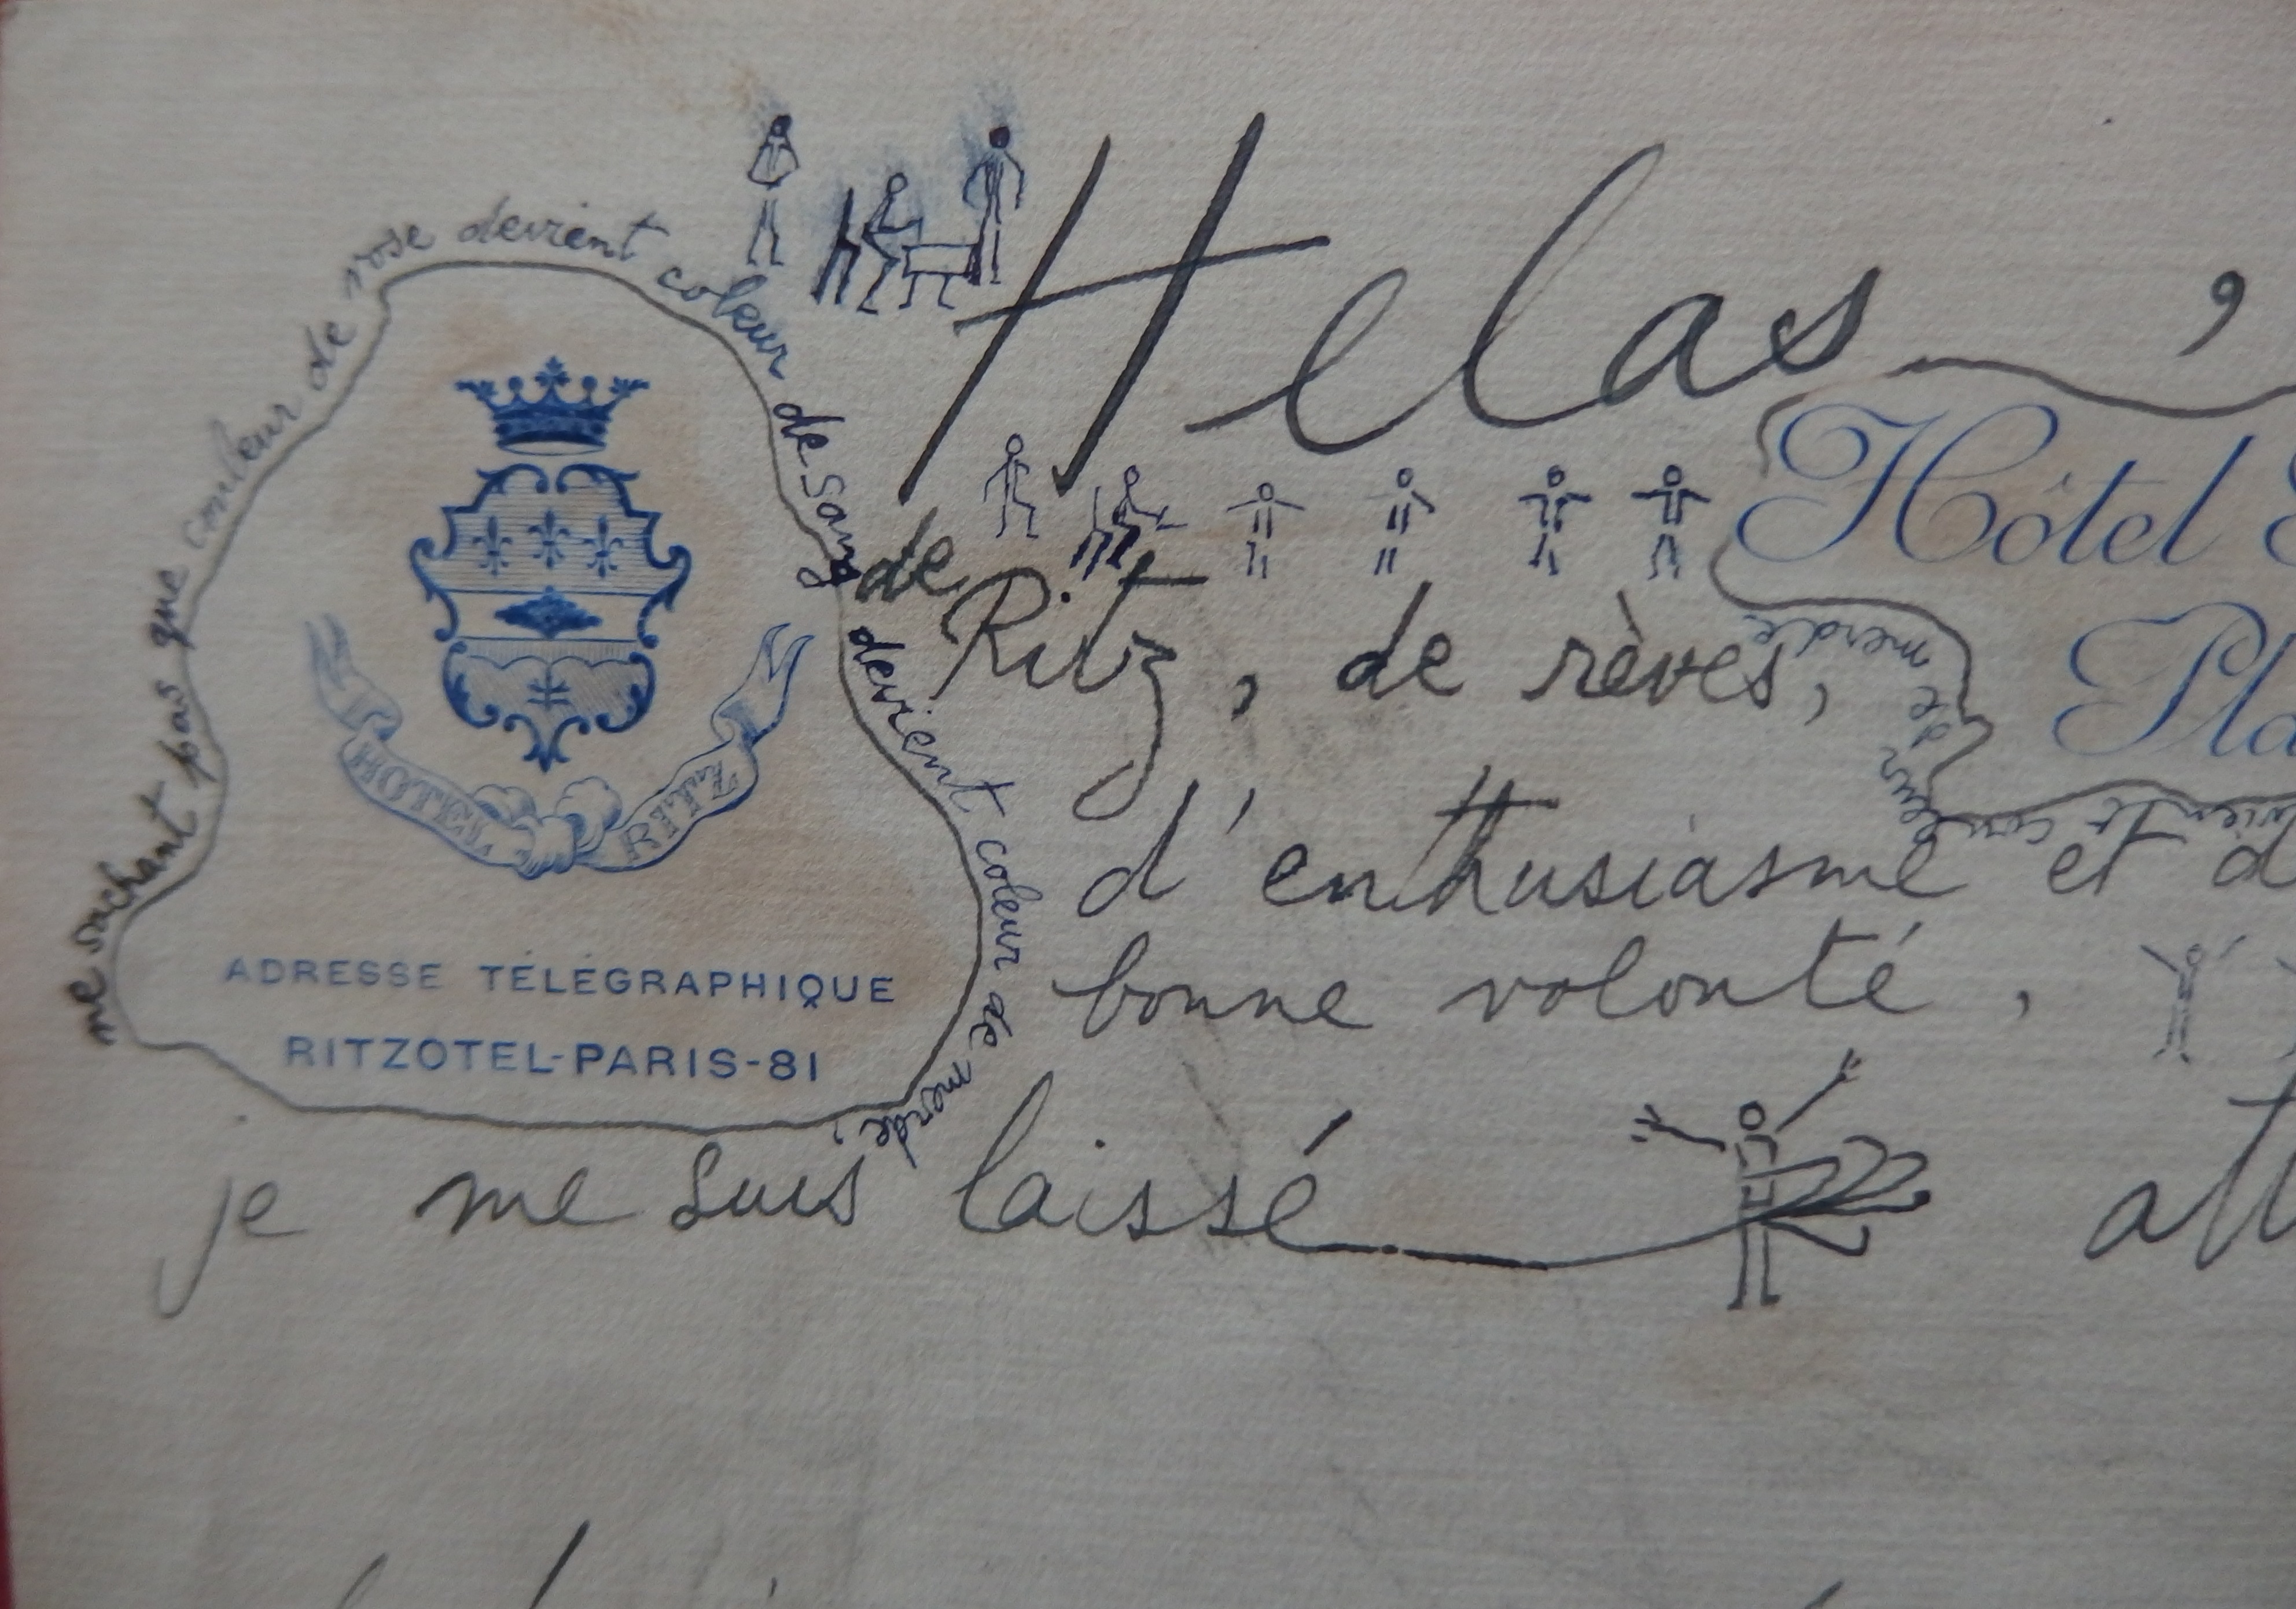 Helas ,
ne sachant pas que couleur de rose devient coleur de sang devient coleur de merde,
HOTEL RITZ
ADRESSE TÉLÉGRAPHIQUE
RITZOTEL-PARIS-81
Hôtel
Pla
de Ritz, de rèves,
merde
de
d'enthusiasme et d
bonne volonté,
je me suis laissé att